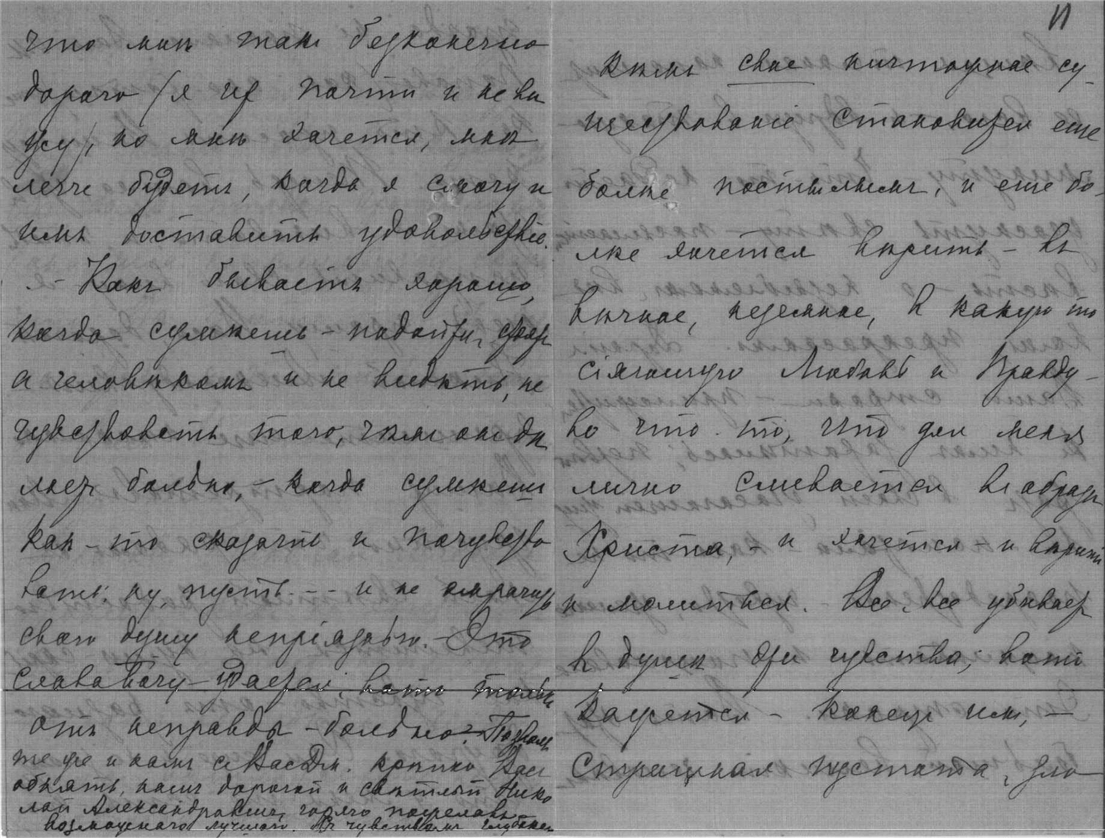 что мнѣ такъ безконечно
дорого (я ихъ почти и не ви
жу), но мнѣ хочется, мнѣ
легче будетъ, когда я смогу и
имъ доставить удовольствіе.
– Какъ бываетъ хорошо,
когда сумѣешь – подойти
а человѣкомъ и не видѣть, не
чувствовать того, чѣмъ онъ дѣ
лаетъ больно, – когда сумѣешь
какъ-то сказать и почувство
вать, ну, пусть --- и не омрачить
свою душу непріязнью. – Это
Слава Богу – удается, вотъ только
отъ неправды – больно.
те же и намъ с крѣпко Вас
обнять, нашъ дорогой и свѣтлый Нико
лай Александровичъ, горячо пожелавъ
возможнаго лучшаго. чувствомъ
11
вѣмъ свое ничтожное су-
ществованіе становится еще
болѣе постылымъ, и еще бо-
лѣе хочется вѣрить – въ
вѣчное, неземное, в какую то
сіяющую Любовь и Правду –
во что-то, что для меня
лично сливается въ образъ
Христа, – и хочется – и вѣрить
и молиться. Все, все убиваетъ
в душѣ эти чувства, вотъ
кажется – конецъ имъ, –
страшная пустота, зло